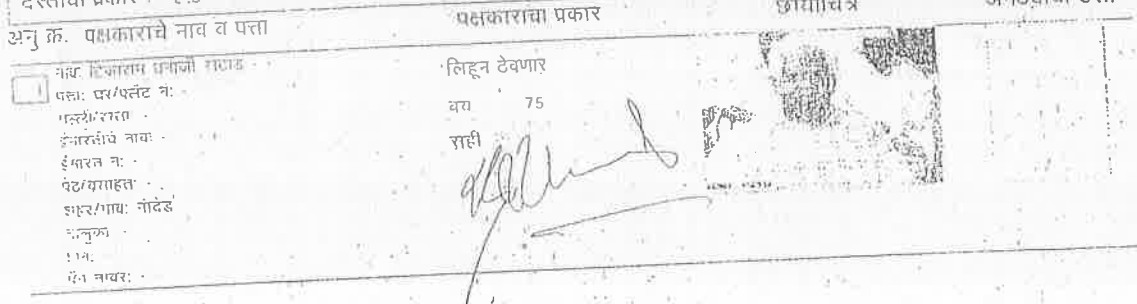 दस्ताचा प्रकार
अनु क्र. पक्षकाराचे नाव व पत्ता
पक्षकाराचा प्रकार
छायाचित्र
अंगठ्याचा ठसा
नाव:
पत्ता: घर/फ्लॅट नं: -
गल्ली/रस्ता: -
ईमारतीचे नाव: -
ईमारत नं: -
पेठ/वसाहत: -
शहर/गाव: नांदेड
तालुका: -
पिन: -
पॅन नम्बर: -
लिहून ठेवणार
वय 75
सही